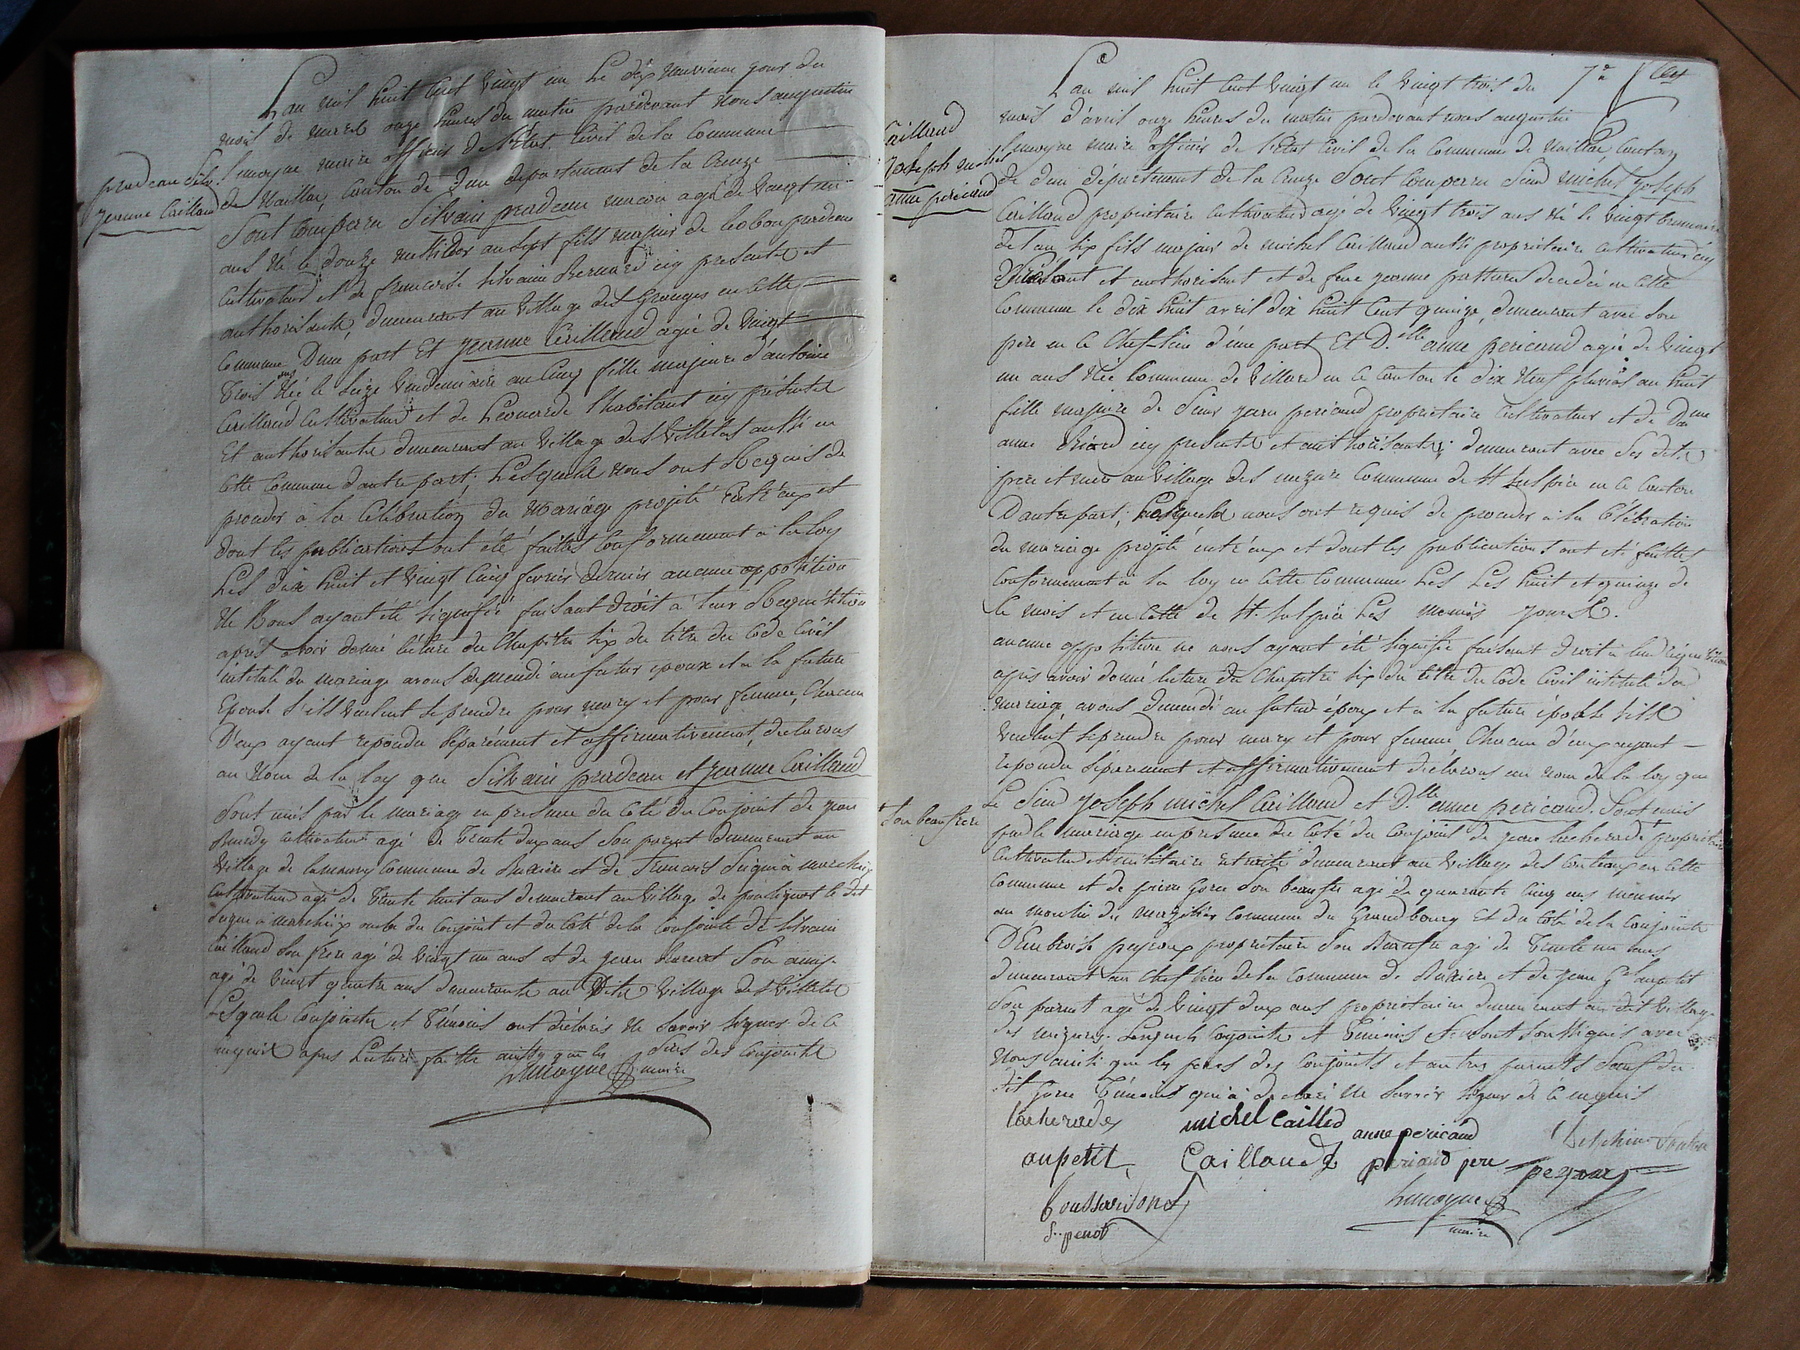 prudeau Silv.
Jeanne Caillaud
L'an mil huit cent vingt un le dix neuvieme jour du
mois de mars onze heures du matin pardevant nous augustin
lemoyne maire officier de l'Etat Civil de la Commune
de Naillac, canton de Dun departement de la Creuze
Sont comparu Silvain prudeau macon agé de vingt un
ans né le douze messidor an sept fils majeur de
cultivateur et de francoise silvain Bernard icy presente et
authorisante, demeurant au village des Granges en cette
Commune D'une part Et Jeanne Caillaud agée de vingt
trois ans Née le seize Vendemiaire an cinq fille majeure d'antoine
Caillaud Cultivateur et de Leonarde l'habitant icy présente
Et authorisante demeurant au village des Villetes aussi en
cette Commune d'autre part; Lesquels nous ont Requis de
proceder à la Celebration du Mariage projetté Entr'eux et
dont les publications ont été faittes conformement à la loy
Les dix huit et vingt cinq fevrier dernier aucune opposition
Ne Nous ayant été signifié faisant droit à leur Requisition
aprés avoir donné lecture du Chapitre six du titre du Code Civil
intitulé du mariage avons demandé au futur epoux et a la future
Epouse s'ils veulent se prendre pour mary et pour femme, Chacun
D'eux ayant repondu séparément et affirmativement, declarons
au Nom de la loy que Silvain prudeau et Jeanne Caillaud
Sont unis par le mariage en presence du Coté du Conjoint de jean
cultivateur agé de Trente deux ans Son parent demeurant au
village de commune de et de francois
cultivateur agé de trente huit ans demeurant au village de le dit
du conjoint et du Coté de la conjointe de Silvain
Caillaud Son frere agé de Vingt un ans et de jean Son amis
agé de vingt quatre ans demeurants au Dit village des Villetes
Lesquels Conjoints et Témoins ont déclarés Ne Savoir signer de ce
enquis apres Lecture faitte ainsy que les peres des Conjoints
Lemoyne maire
7e f let
Caillaud
Joseph michel
anne pericaud
L'an mil huit cent vingt un le vingt trois du
mois d'avril onze heures du matin pardevant nous augustin
lemoyne maire officier de l'Etat Civil de la Commune de Naillac, Canton
de Dun departement de la Creuze Sont comparu Sieur michel Joseph
Caillaud propriétaire Cultivateur agé de Vingt trois ans Né le Vingt brumaire
de l'an six fils majeur de michel Caillaud aussi propriétaire cultivateur icy
présent et authorisant et de feue jeanne decedée en cette
Commune le dix huit avril dix huit Cent quinze, demeurant avec Son
pere en ce Chef lieu d'une part Et D.lle anne pericaud agée de Vingt
un ans Née Commune de Villard en ce Canton le dix Neuf pluvios an huit
fille majeure de Sieur jean pericaud propriétaire Cultivateur et de Dame
anne icy presents et authorisants; demeurant avec Ses dits
pere et mere au village des Commune de St Sulpice en ce Canton
D'autre part; Lesquels nous ont requis de proceder à la Célébration
du mariage projeté entr'eux et dont les publications ont été faittes
conformement à la loy en cette Commune Les Les huit et quinze de
ce mois et en celle de St. Sulpice Les memes jours.
aucune opposition ne nous ayant été signifié faisant droit à leur réquisition
apres avoir donné lecture du Chapitre six du titre du Code Civil intitulé du
mariage avons demandé au futur époux et à la future épouse s'ils
veulent se prendre pour mary et pour femme Chacun d'eux ayant
repondu séparement et affirmativement declarons au nom de la loy que
Le Sieur Joseph michel Caillaud et D.lle anne pericaud. Sont unis
par le mariage en presence du Coté du Conjoint de jean lacherade propriétaire
Son beau frere
Cultivateur et militaire retraité demeurant au village des en cette
Commune et de pierre Gorce Son beau frere agé de quarante cinq ans meunier
au moulin du Commune du Grandbourg Et du Coté de la Conjointe
D'Embroise peyroux propriétaire Son beaufre agé de Trente un ans
demeurant au Chef lieu de la Commune de et de jean aupetit
Son parent agé de Vingt deux ans propriétaire demeurant au dit village
des Lesquels Conjoints et Temoins Se sont Soussignés avec
Nous ainsi que les peres des Conjoints et autres parents Sauf du
dit Gorce Témoin qui à déclaré Ne Savoir Signer de ce enquis
lacherade
michel Cailled
anne pericaud
aupetit
Caillaud
periaud pere
peyroux
S.. penot
Lemoyne
maire